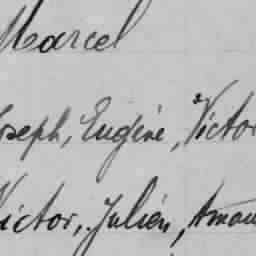 Marcel
Joseph, Eugène, Victor
Victor, Julien,